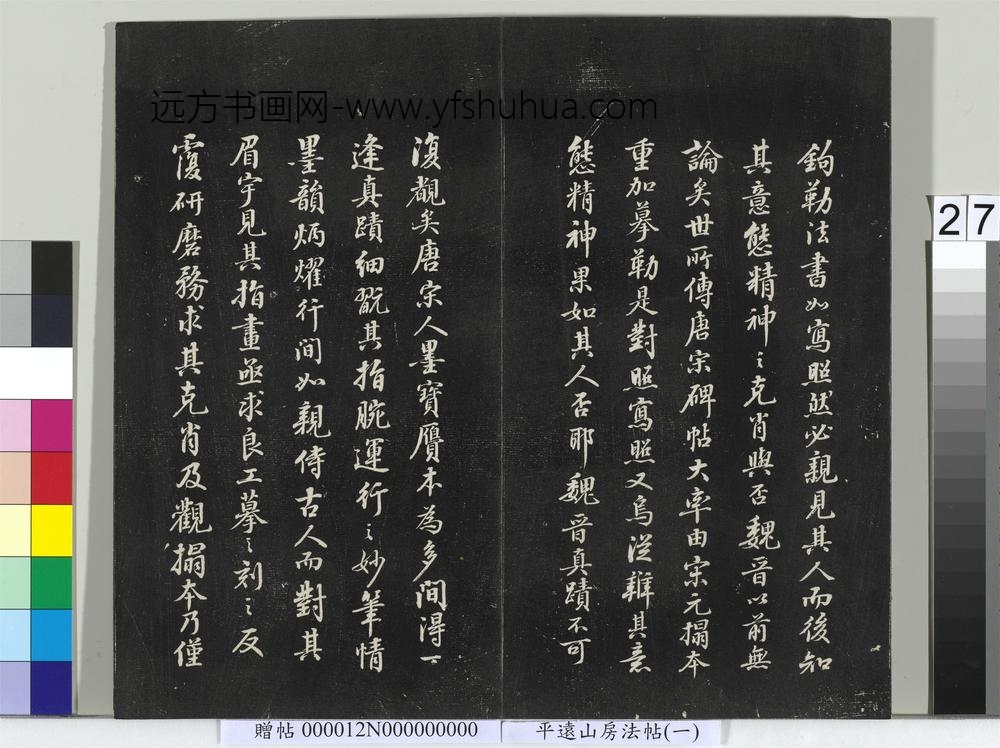 远方书画网-www.yfshuhua.com
27
鉤勒法書如寫照然必親見其人而後知
其意態精神之克肖與否魏晉以前無
論矣世所傳唐宋碑帖大率由宋元搨本
重加摹勒是對照寫照又烏從辨其意
態精神果如其人否耶魏晉真蹟不可
復覩矣唐宋人墨寶贗本為多間得一
逢真蹟細翫其指腕運行之妙筆情
墨韻炳燿行間如親侍古人而對其
眉宇見其指畫亟求良工摹之刻之反
覆研磨務求其克肖及觀搨本乃僅
贈帖 000012N000000000
平遠山房法帖(一)